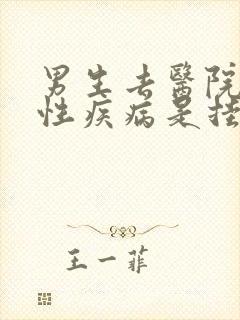 男生去醫院
性疾病是挂
王一菲